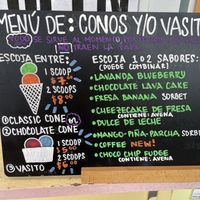 MENÚ DE: CONOS Y/O VASITO
TODO SE SIRVE AL MOMENTO
NO TRAEN LA TAPA
ESCOJA ENTRE:
1 SCOOP
2 SCOOPS
① CLASSIC CONE
② CHOCOLATE CONE
1 SCOOP
$5.00
2 SCOOPS
$6.00
③ VASITO
ESCOJA 1 O 2 SABORES:
(PUEDE COMBINAR)
• LAVANDA BLUEBERRY
• CHOCOLATE LAVA CAKE
• FRESA BANANA SORBET
• CHEESECAKE DE FRESA
CONTIENE: AVENA
• DULCE DE LECHE
• MANGO-PIÑA-PARCHA SORBET
• COFFEE NEW!
• CHOCO CHIP FUDGE
CONTIENE: AVENA